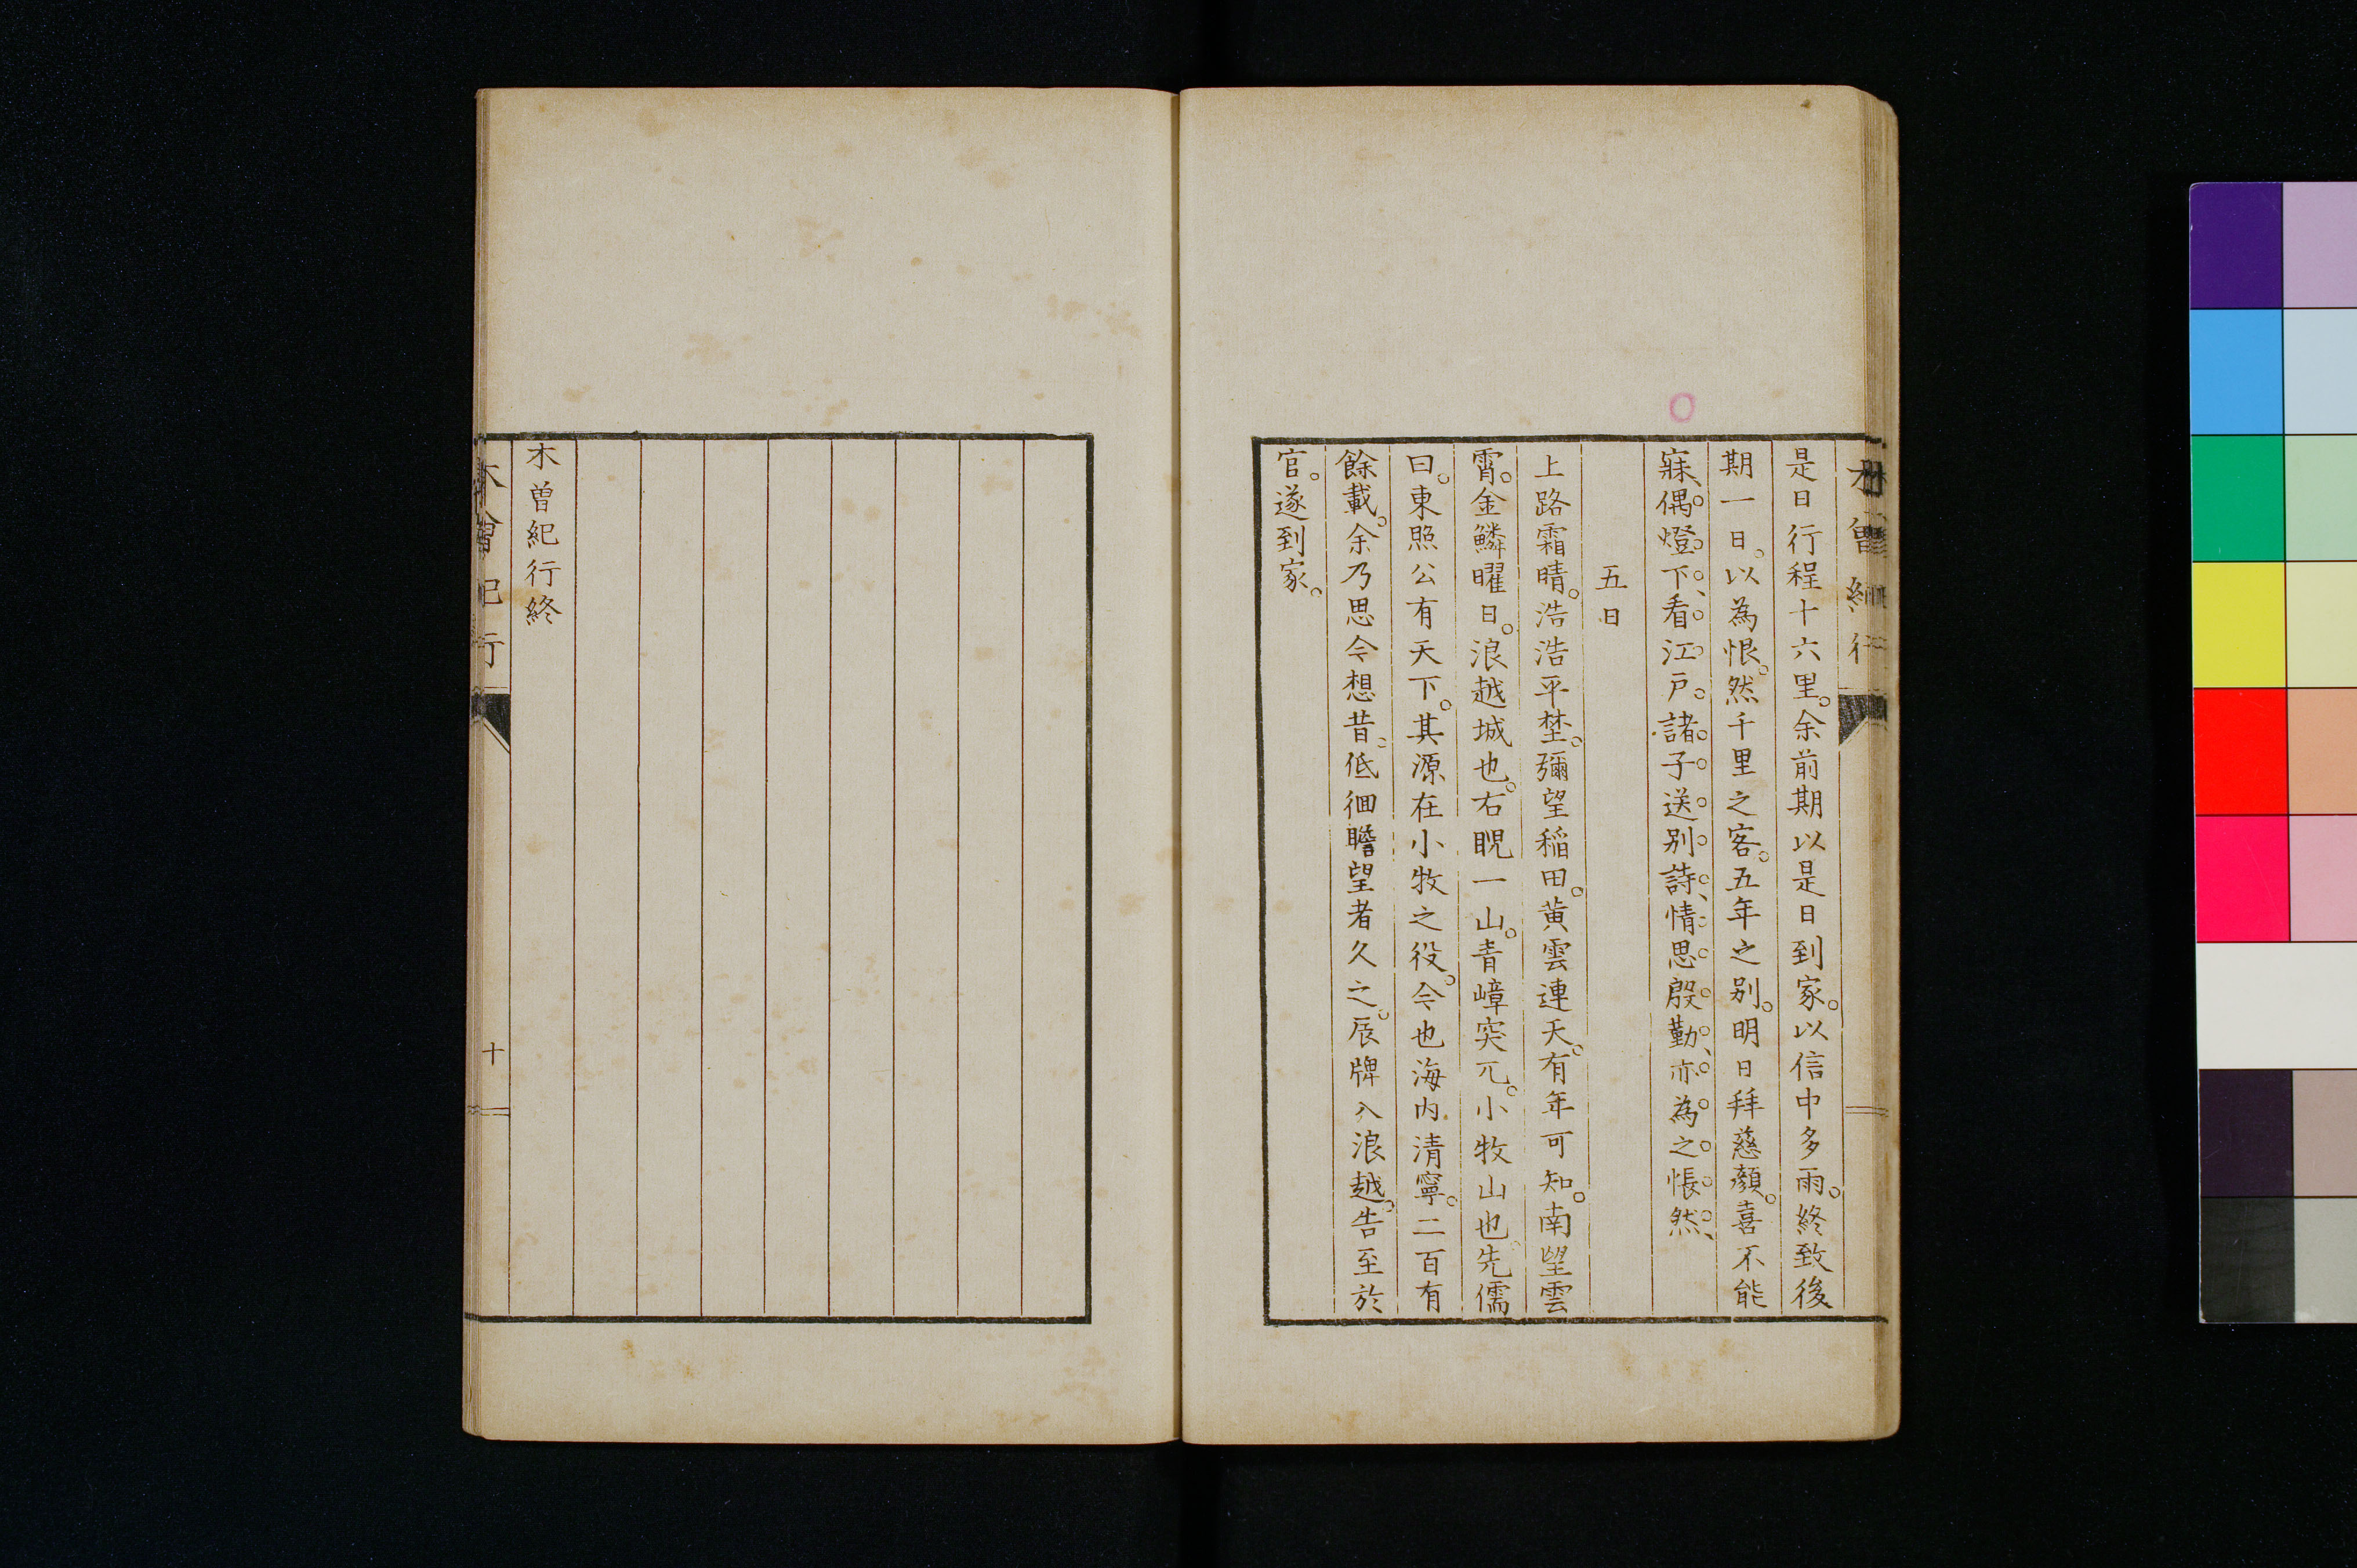 木曾紀行
是日行程十六里。余前期以是日到家。以信中多雨。終致後
期一日。以為恨。然千里之客。五年之別。明日拜慈顏。喜不能
寐、偶燈下、看江戶諸子送別詩、情思殷勤、亦為之悵然、
五日
上路霜晴。浩浩平埜。彌望稲田。黄雲連天。有年可知。南望雲
霄。金鱗曜日。浪越城也。右睨一山。青嶂突兀。小牧山也。先儒
曰。東照公有天下。其源在小牧之役。今也海内清寧。二百有
餘載。余乃思今想昔。低徊瞻望者久之。辰牌入浪越。告至於
官。遂到家。
木曾紀行終
木曾紀行
十